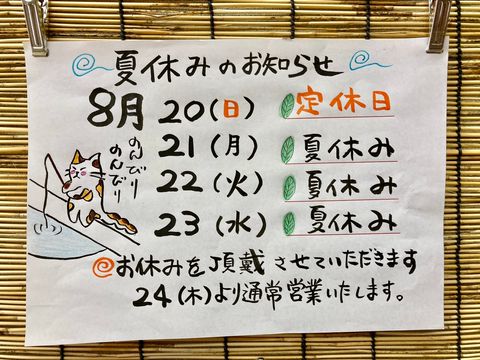 夏休みのお知らせ
8月 20(日) 定休日
21(月) 夏休み
22(火) 夏休み
23(水) 夏休み
のんびり
のんびり
お休みを頂戴させていただきます
24(木)より通常営業いたします。